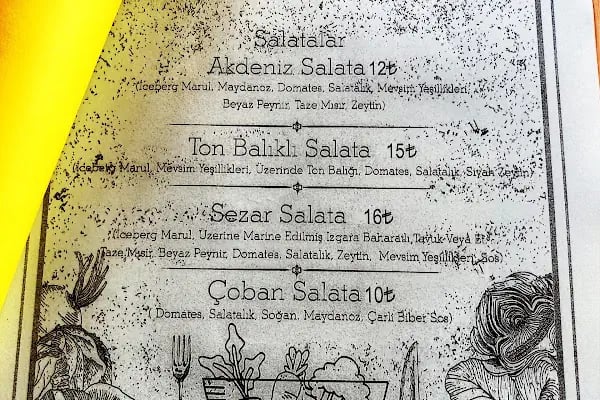 Salatalar
Akdeniz Salata 12₺
(Iceberg Marul, Maydanoz, Domates, Salatalık, Mevsim Yeşillikleri,
Beyaz Peynir, Taze Mısır, Zeytin)
Ton Balıklı Salata 15₺
(Iceberg Marul, Mevsim Yeşillikleri, Üzerinde Ton Balığı, Domates, Salatalık, Siyah Zeytin)
Sezar Salata 16₺
(Iceberg Marul, Üzerine Marine Edilmiş Izgara Baharatlı Tavuk Veya Et
Taze Mısır, Beyaz Peynir, Domates, Salatalık, Zeytin, Mevsim Yeşillikleri, Sos)
Çoban Salata 10₺
( Domates, Salatalık, Soğan, Maydanoz, Çarli Biber Sos)